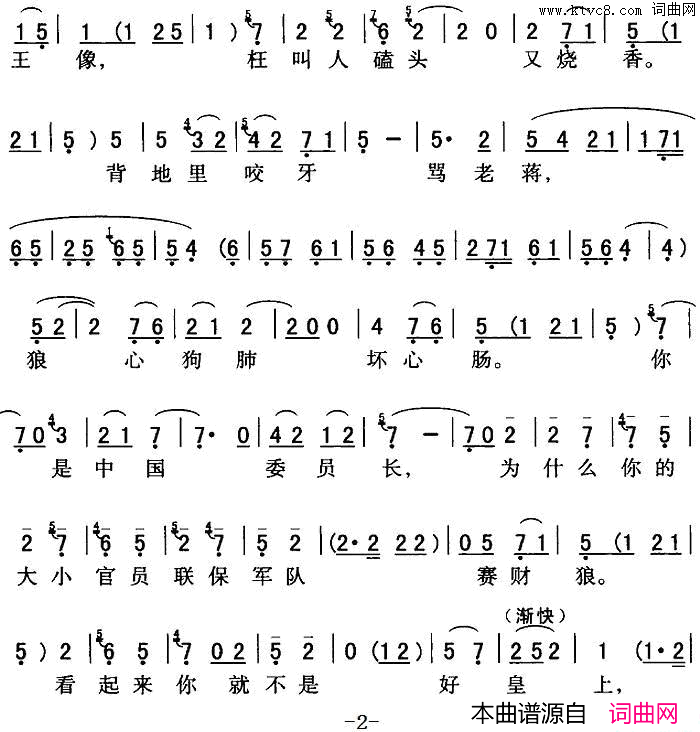 www.ktvc8.com 词曲网
王像，枉叫人磕头又烧香。
背地里咬牙骂老蒋，
狼心狗肺坏心肠。你
是中国委员长，为什么你的
大小官员联保军队赛财狼。
（渐快）
看起来你就不是好皇上，
-2-
本曲谱源自 词曲网